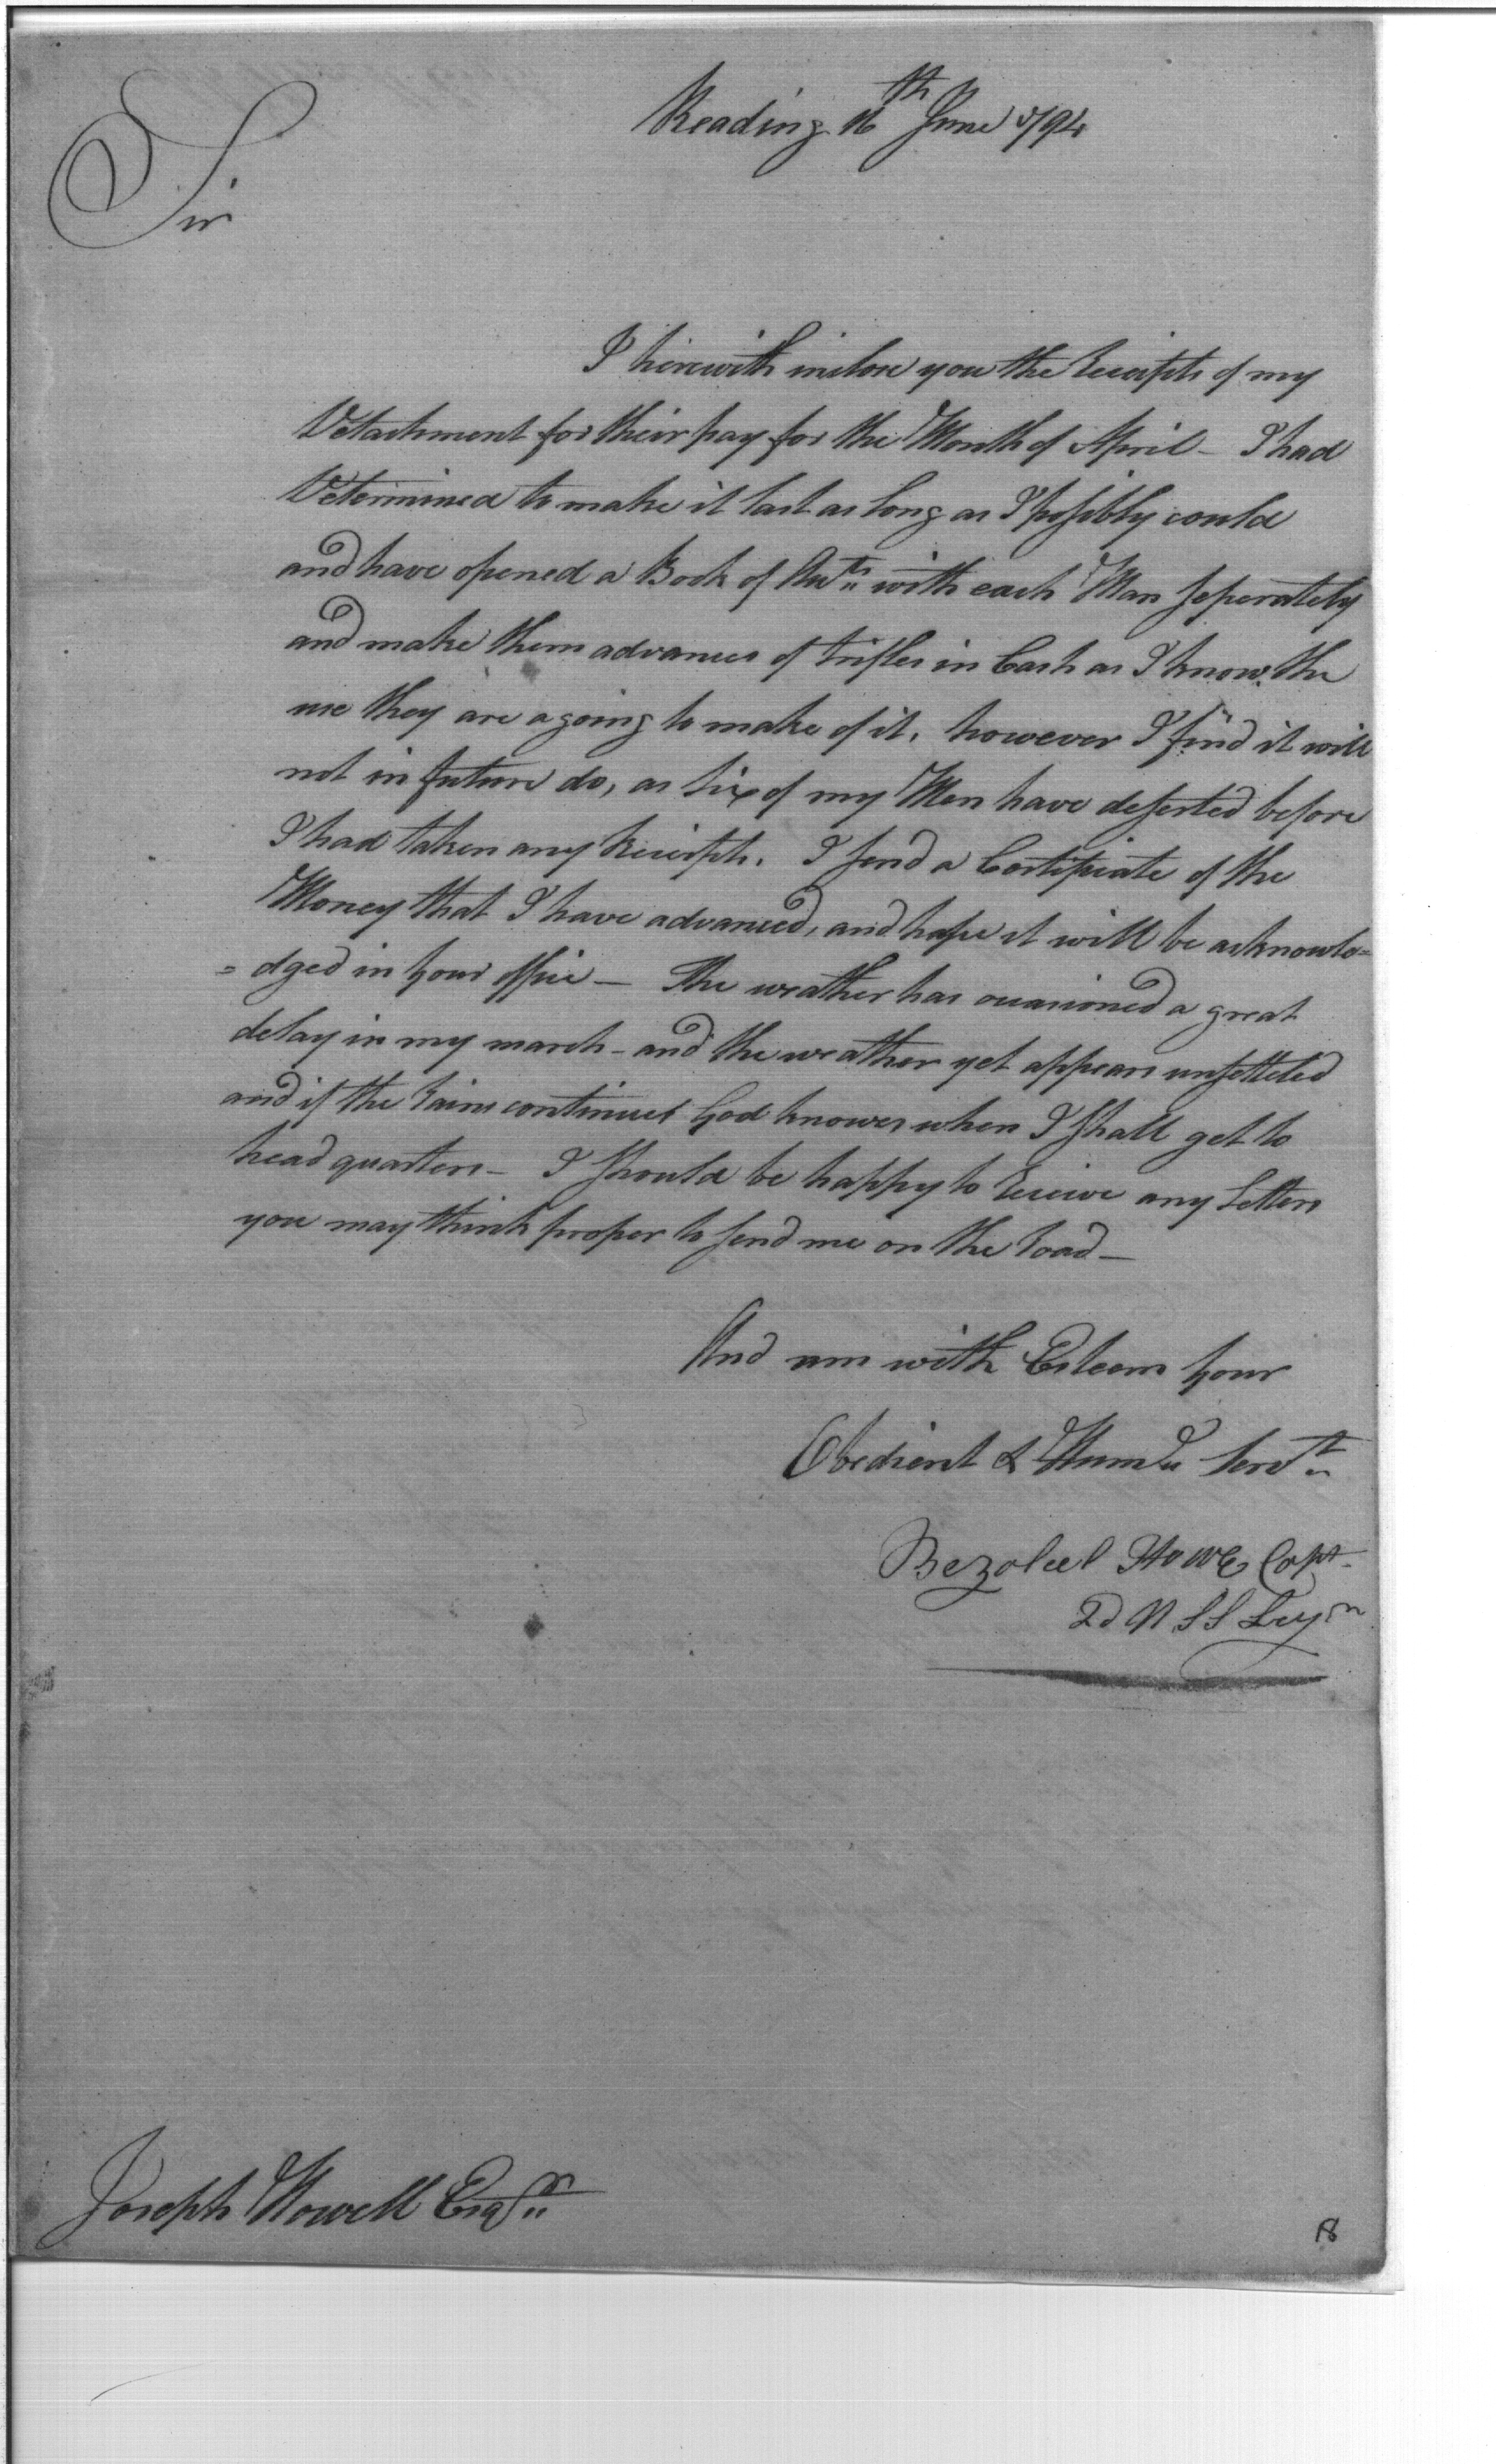 Reading 16th June 1794
Sir
I herewith inclose you the Receipts of my
Detachment for their pay for the Month of April - I had
Determined to make it last as long as I possibly could
and have opened a Book of Accts with each Man seperately
and make them advances of trifles in Cash as I know the
use they are agoing to make of it. however I find it will
not in future do, as six of my Men have deserted before
I had taken any Receipts. I send a Certificate of the
Money that I have advanced, and hope it will be acknowle=
=dged in your office — The weather has occasioned a great
delay in my march - and the weather yet appears unsetteled
and if the rains continues God knowes when I shall get to
head quarters - I should be happy to receive any Letters
you may think proper to send me on the road —
And am with Esteem your
Obedient & Humle Servt
Bezaleel Howe Capt
2d U S S Legn
Joseph Howell Esqr